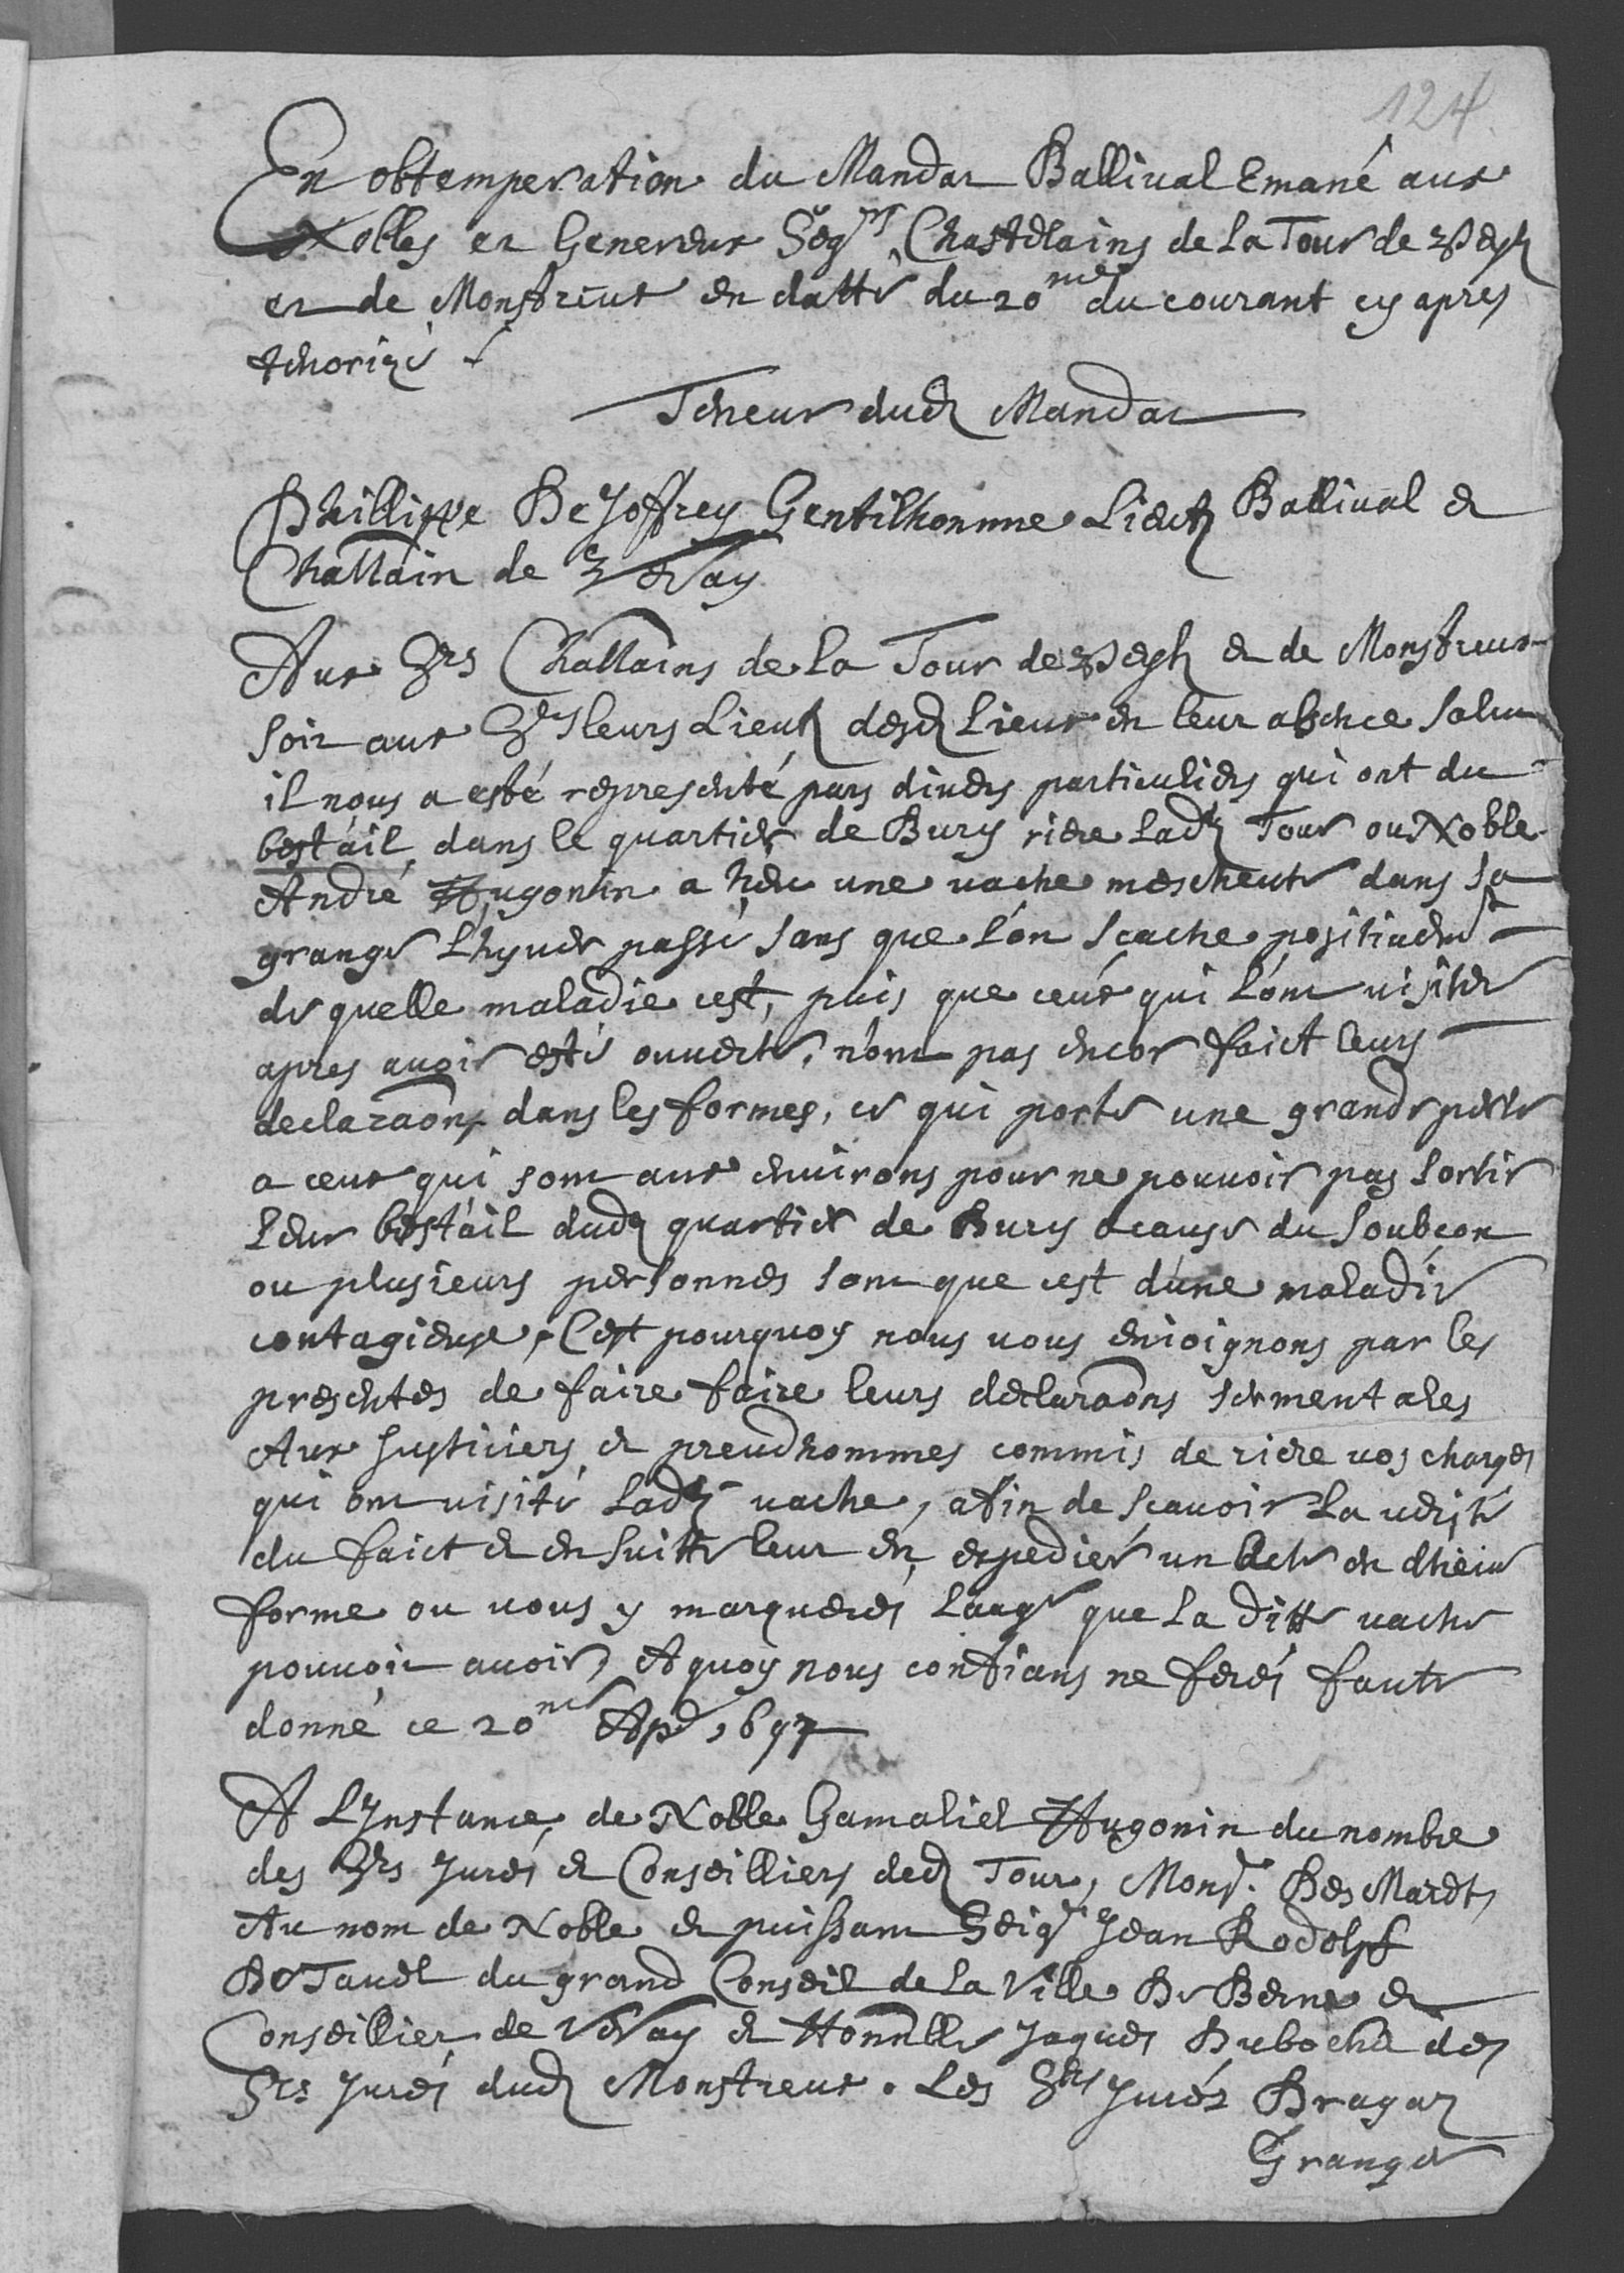 124.
En obtemperation du Mandat Ballival Emané aux
Nobles et Genereux Seigrs Chastelains de La Tour de Peylz
et de Monstreux en datte du 20me du courant cy apres
thenorizé
Theneur dud Mandat
Phillippe De Joffrey Gentilhomme Lieut Ballival et
Challain de Vevay
Aux Srs Challains de La Tour de Peylz et de Monstreux
soit aux Srs leurs Lieut desd Lieux en leur absence Salut
il nous a esté representé pars divers particuliers qui ont du
bestail dans le quartier de Bury riere Lad Tour ou Noble
André Hugonin a heu une vache mescheute dans sa
grange L'hyver passé sans que l'on scache positivemt
de quelle maladie cest, puis que ceux qui l'ont visitée
apres avoir esté ouverte, n'ont pas encor faict leurs
declaraons dans les formes, ce qui porte une grande perte
a ceux qui sont aux environs pour ne pouvoir pas sortir
leur bestail dud quartier de Bury a cause du soubçon
ou plusieurs personnes sont que cest d'une maladie
contagieuse, Cest pourquoy nous vous enioignons par les
presentes de faire faire leurs declaraons sermentales
Aux Justiciers et preudhommes commis de riere vos charges
qui ont visité Lad vache, afin de scavoir La verité
du faict et en suitte leur en expedier un acte en dheue
forme ou vous y marquerés Laage que la ditte vache
pouvoit avoir, A quoy nous confians ne ferés faute
donné ce 20me Apl 1697
A L'Instance de Noble Gamaliel Hugonin du nombre
des Srs Jurés et Conseilliers ded Tour, Monsr. Des Marets,
Au nom de Noble et puissant Seigr Jean Rodolf
De Tavel du grand Conseil de La Ville De Berne et
Conseillier de Vevay et Honnble Jaques Dubochet des
Srs Jurés dud Monstreux. Les Srs Jurés Bragaz
Granger